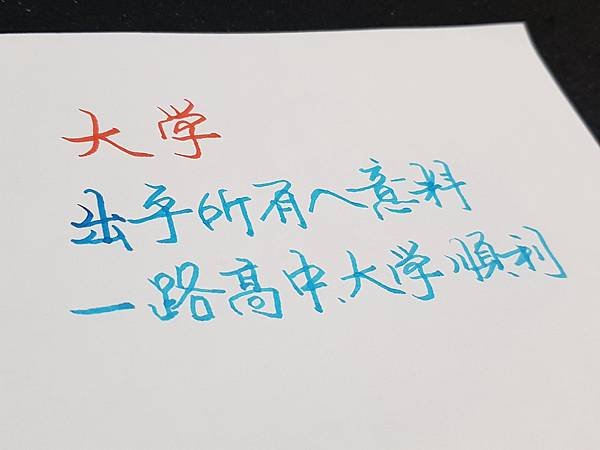 大学
出乎所有人意料
一路高中、大学順利